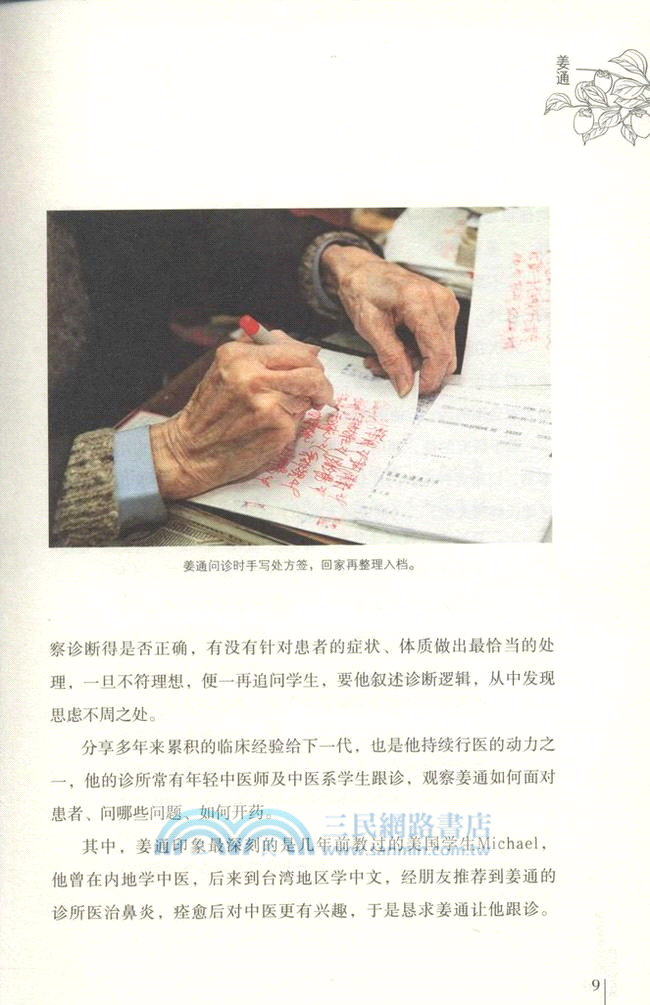 姜通
姜通问诊时手写处方签，回家再整理入档。
察诊断得是否正确，有没有针对患者的症状、体质做出最恰当的处
理，一旦不符理想，便一再追问学生，要他叙述诊断逻辑，从中发现
思虑不周之处。
分享多年来累积的临床经验给下一代，也是他持续行医的动力之
一，他的诊所常有年轻中医师及中医系学生跟诊，观察姜通如何面对
患者、问哪些问题、如何开药。
三民網路書店
www.sanmin.com.tw
其中，姜通印象最深刻的是几年前教过的美国学生Michael，
他曾在内地学中医，后来到台湾地区学中文，经朋友推荐到姜通的
诊所医治鼻炎，痊愈后对中医更有兴趣，于是恳求姜通让他跟诊。
9